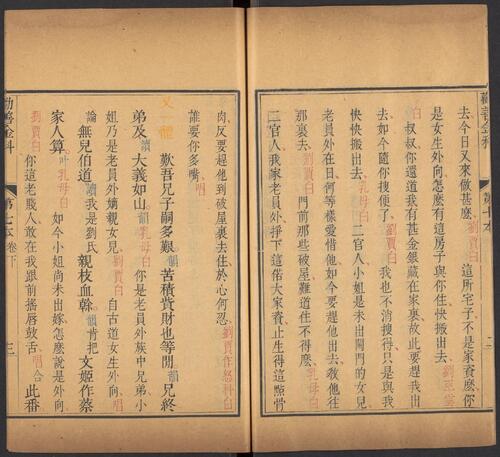 勸善金科
第七本
二
去今日又來做甚麼劉賈白這所宅子不是家資麼你
是女生外向怎麼有這房子與你住快搬出去劉亞雲
白叔叔你還道我有甚金銀藏在家裏故此要趕我出
去如今隨你搜便了劉賈白我也不消搜得只是與我
快快搬出去乳母白二官人小姐是未出閣門的女兒
老員外在日何等樣愛惜他如今要趕他出去教他往
那裏去劉賈白門前那些破屋難道住不得麼乳母白
二官人我家老員外掙下這偌大家資止生得這點骨
肉反要趕他到破屋裏去住於心何忍劉賈作怒科白
誰要你多嘴唱
又一體
歎吾兄子嗣多艱韻苦積貲財也等閒韻兄終
弟及讀大義如山韻乳母白你是老員外族中兄弟小
姐乃是老員外嫡親女兒劉賈白自古道女生外向唱
論無兒伯道讀我是劉氏親枝血幹韻肯把文姬作蔡
家人算叶乳母白如今小姐尚未出嫁怎麼說是外向
劉賈白你這老賤人敢在我跟前搖唇鼓舌唱合此番
勸善金科
第七本卷下
三